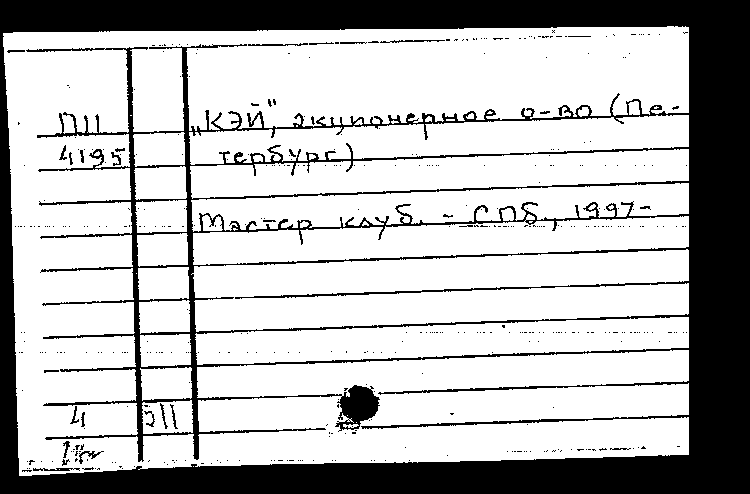 П11 „КЭЙ", акционерное о-во (Пе-
4195 тербург)
Мастер клуб. - СПб., 1997-
4 511